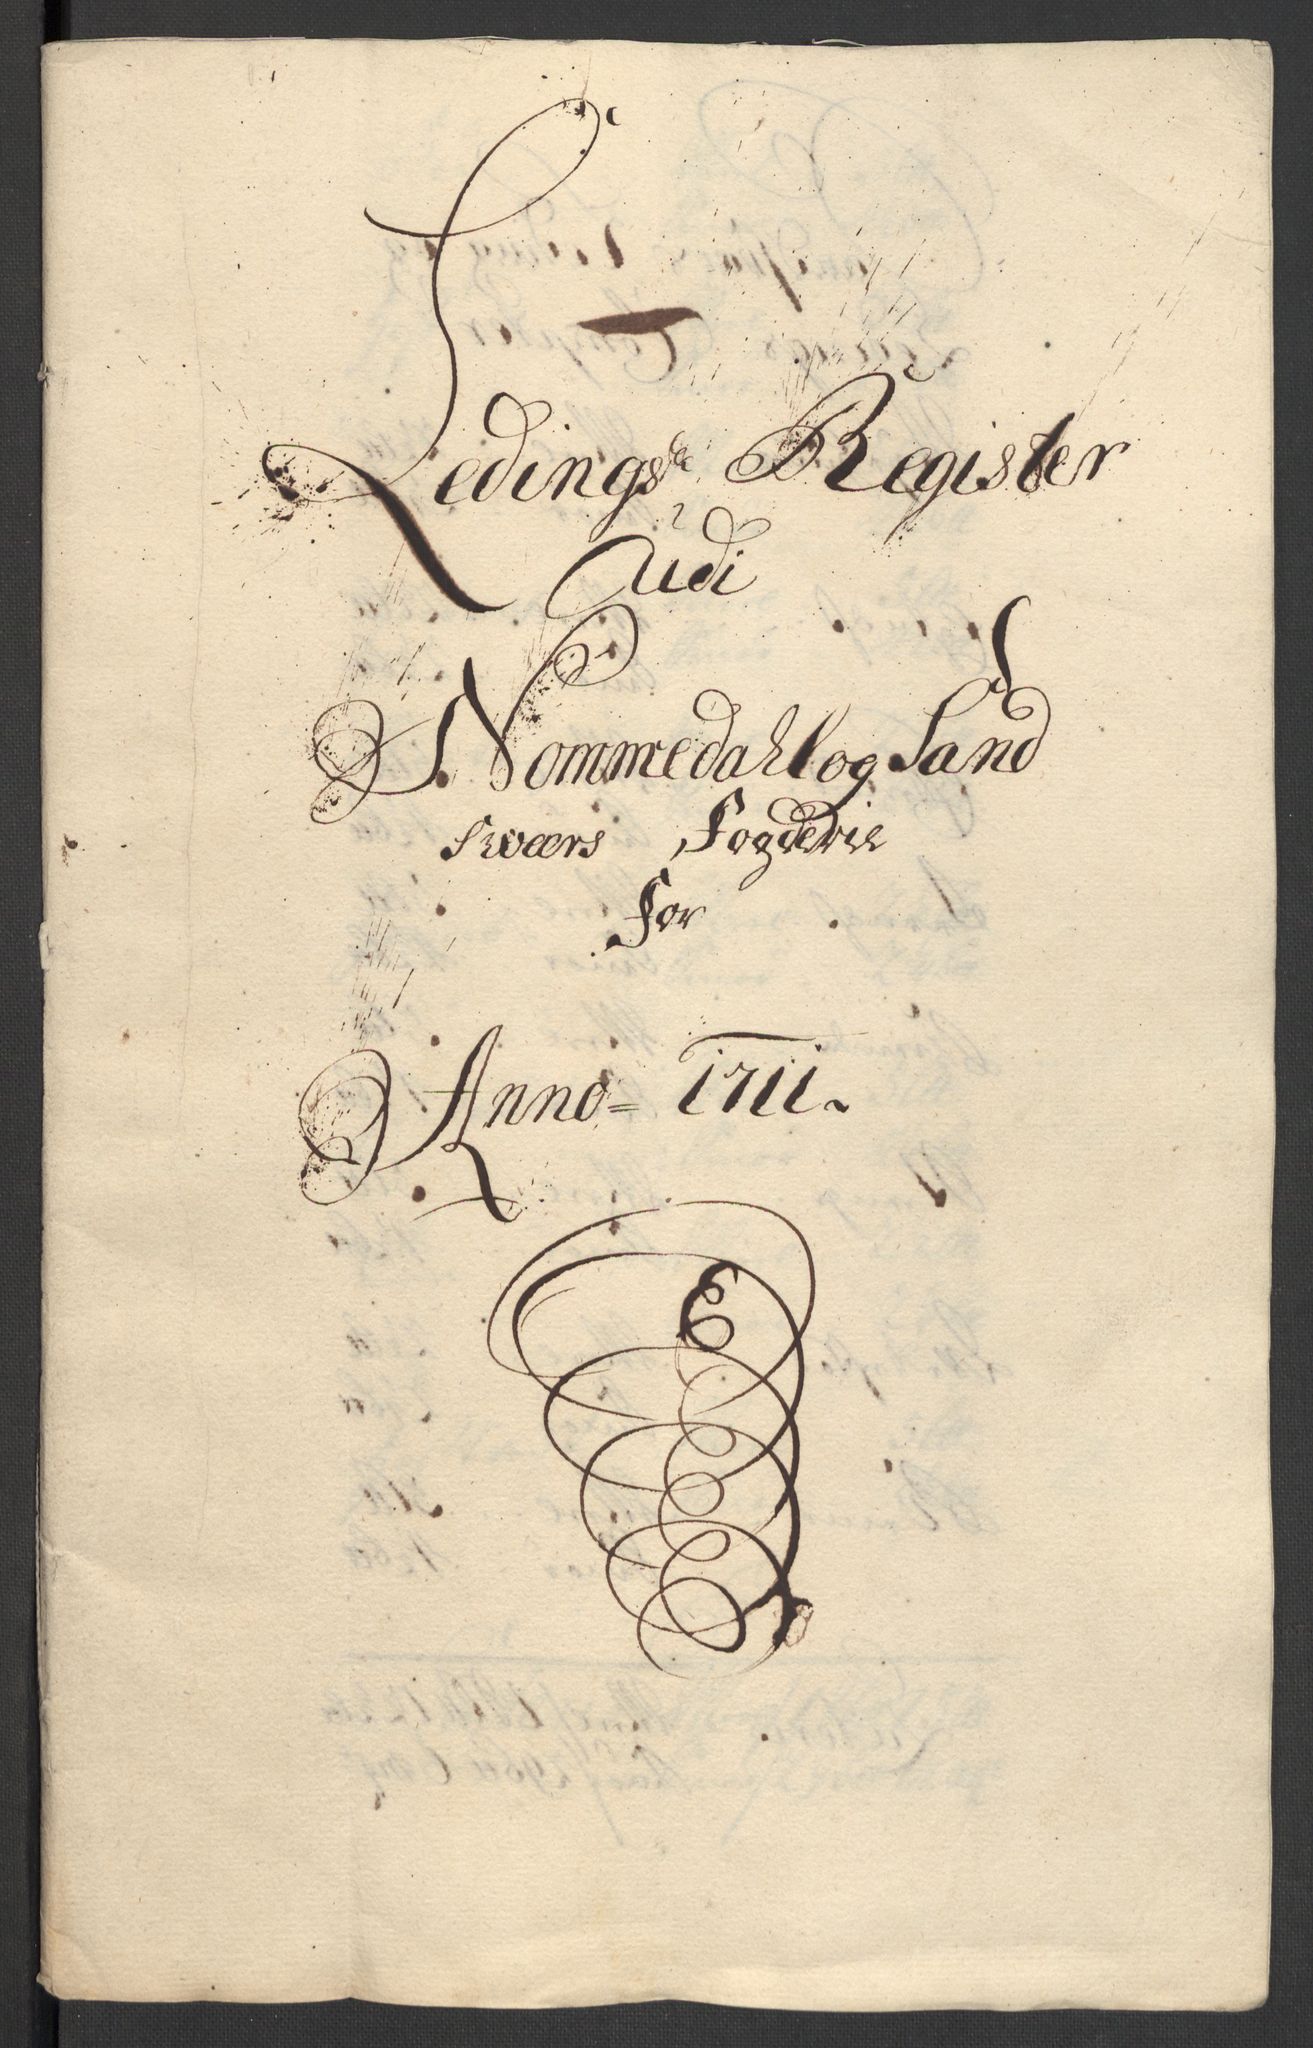 Ledings Register
Udi
Nommedahl og Sand
sværs Fogderie
For
Anno = 1711.